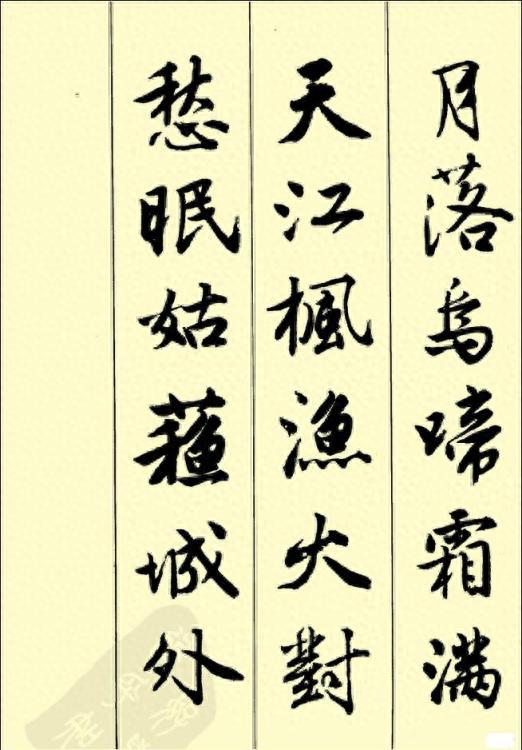 月落烏啼霜滿
天江楓漁火對
愁眠姑蘓城外